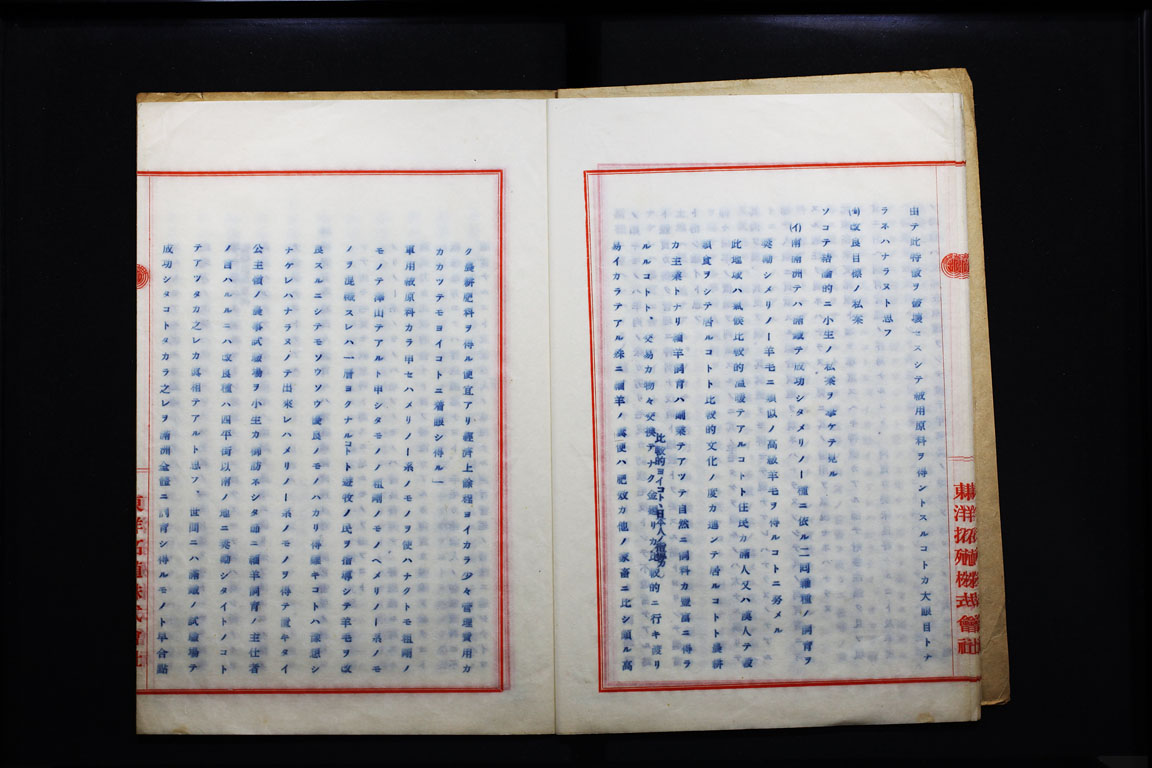 由テ此特徴ヲ破壊セスシテ被用原料ヲ得ントスルコトカ大眼目トナ
ラネハナラヌト思フ
改良目標ノ私案
ソコテ結論的ニ小生ノ私案ヲ挙ケテ見ル
(イ)南満洲テハ諸蔵テ成功シタメリノー種ニ依ル二回雑種ノ飼育ヲ
奨励シメリノー羊毛ニ類似ノ高級羊毛ヲ得ルコトニ努メル
此地域ハ氣候比較的温暖テアルコトト住民カ諸人又ハ漢人テ農
耕ヲシテ居ルコトト比較的文化ノ度カ進ンテ居ルコトト農耕
カ主業トナリ緬羊飼育ハ副業テアツテ自然ニ飼料カ豊富ニ得ラ
ルルコトト、交易カ物々交換テナク金廻リカ比較的ニ行キ渡リ
比較的ヨイコト、日本人ノ指導カ
易イカラテアル殊ニ緬羊ノ糞便ハ肥效カ他ノ家畜ニ比シ頗ル高
東洋拓殖株式會社
ク農耕肥料ヲ得ル便宜アリ經濟上餘程ヨイカラ少々管理費用カ
カカツテモヨイコトニ着眼シ得ル
軍用被原料カラ申セハメリノー系ノモノヲ使ハナクトモ粗剛ノ
モノテ澤山テアルト申シタモノノ粗剛ノモノヘメリノー系ノモ
ノヲ混織スレハ一層ヨクナルコトト遊牧ノ民ヲ指導シテ羊毛ヲ改
良スルニシテモソウソウ優良ノモノハカリ得難キコトハ像想シ
ナケレハナラヌノテ出來レハメリノー系ノモノヲ得テ置キタイ
公主嶺ノ農事試驗場ヲ小生カ御訪ネシタ節ニ緬羊飼育ノ主任者
ノ曰ハルルニハ改良種ハ四平街以南ノ地ニ奨励シタイトノコト
テアツタカ之レカ眞相テアルト思フ、世間ニハ諸蔵ノ試驗場テ
成功シタコトタカラ之レヲ滿洲全體ニ飼育シ得ルモノト早合點
東洋拓殖株式會社